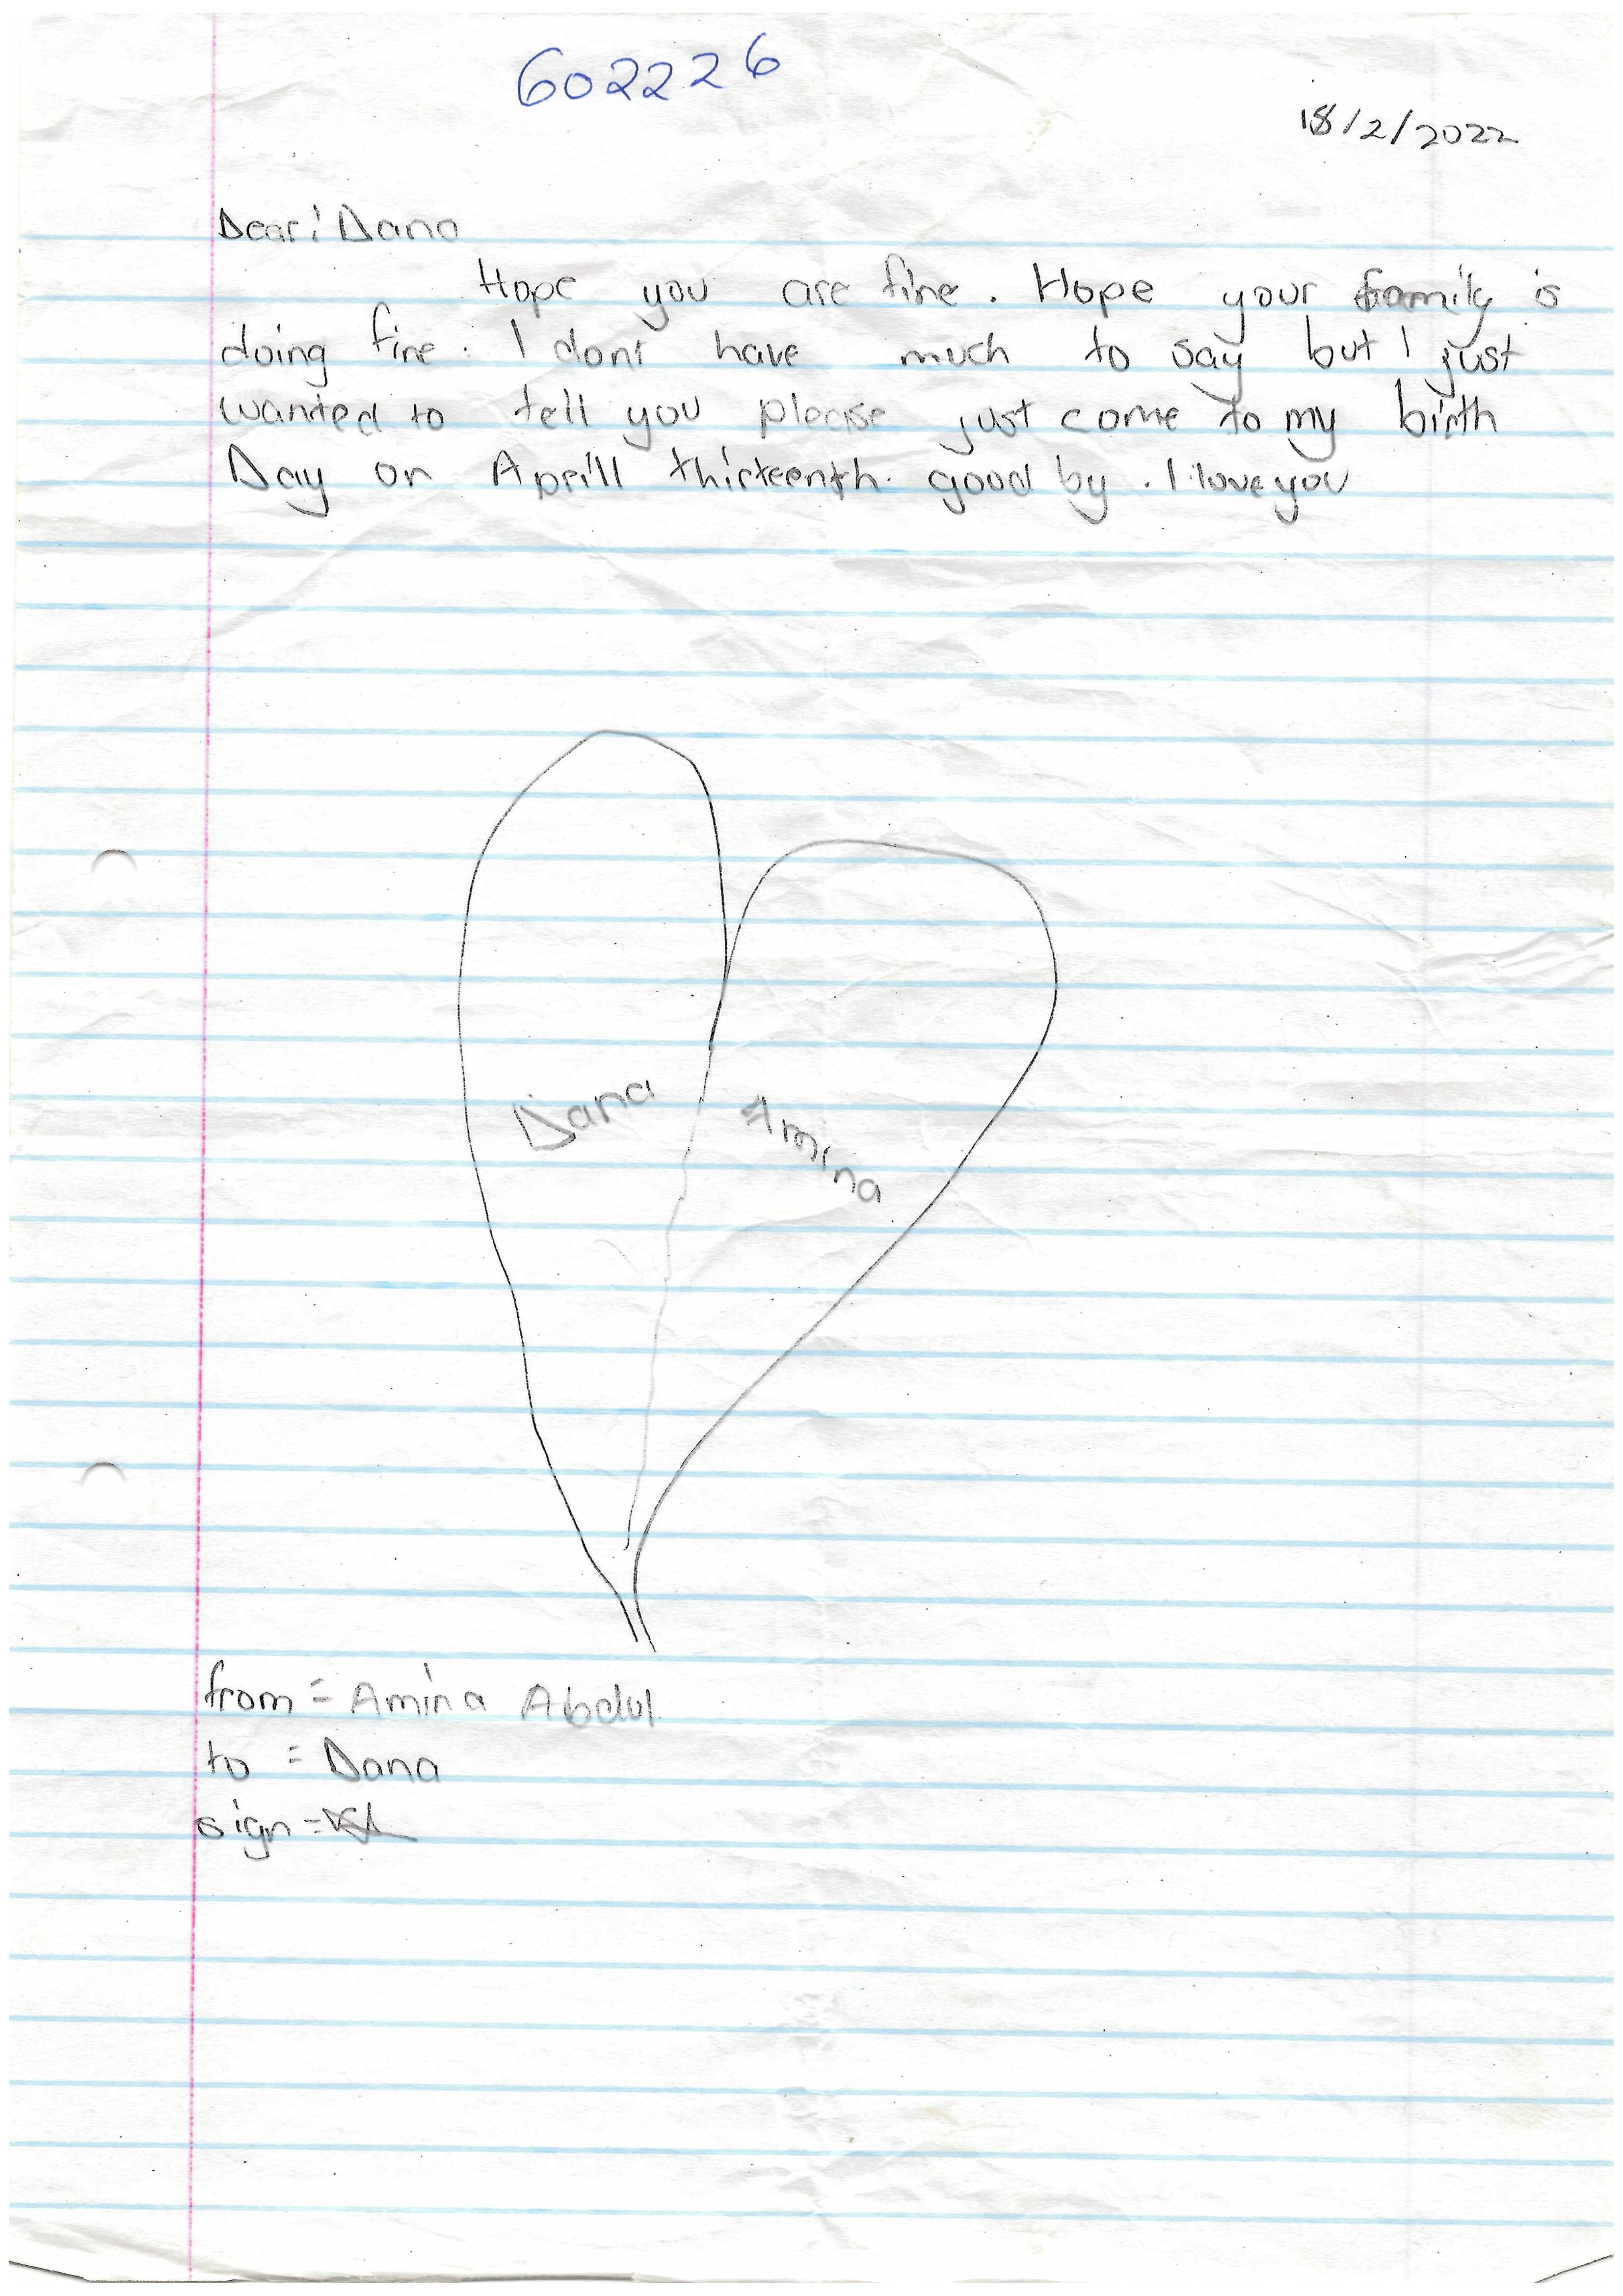 602226
18/2/2022
Dear: Dana
Hope you are fine. Hope your family is
doing fine. I dont have much to say but I just
wanted to tell you please just come to my birth
Day on Aprill thirteenth. good by. I love you
Dana
Amina
from = Amina Abdul
to = Dana
sign =